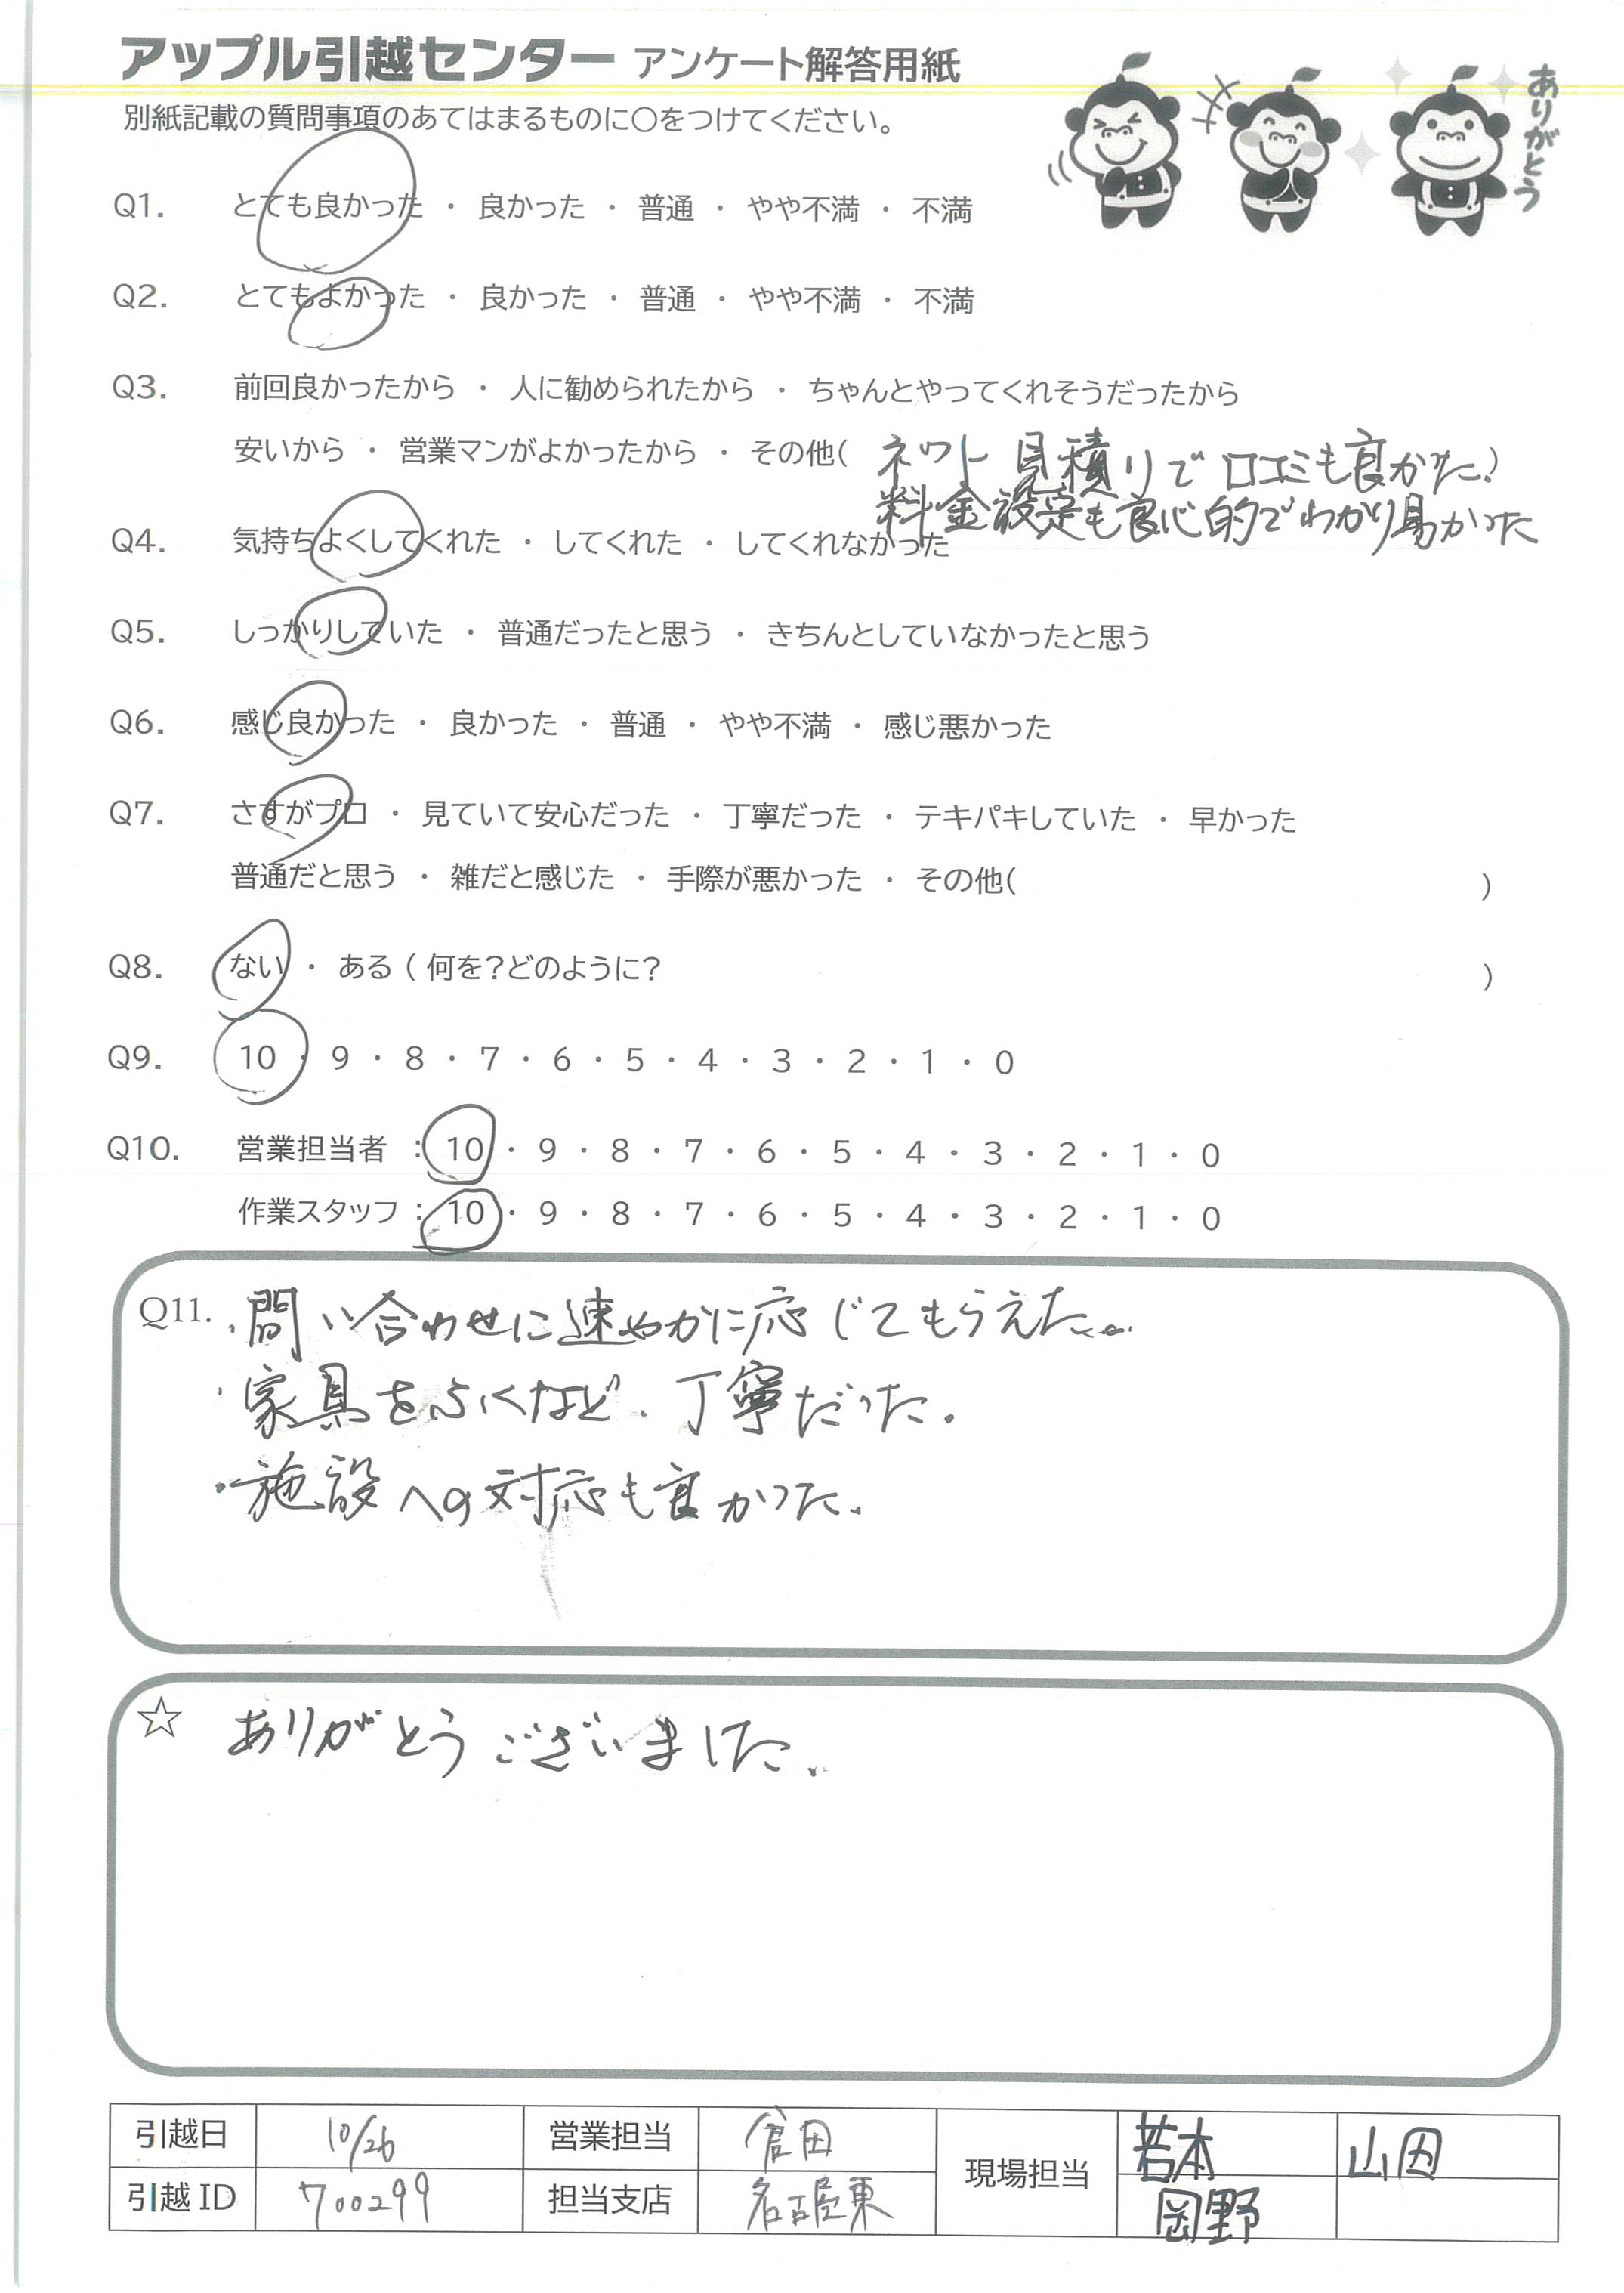 アップル引越センター アンケート解答用紙
ありがとう
別紙記載の質問事項のあてはまるものに○をつけてください。
Q1. とても良かった ・ 良かった ・ 普通 ・ やや不満 ・ 不満
Q2. とてもよかった ・ 良かった ・ 普通 ・ やや不満 ・ 不満
Q3. 前回良かったから ・ 人に勧められたから ・ ちゃんとやってくれそうだったから
安いから ・ 営業マンがよかったから ・ その他( ネット見積りで口コミも良かった)
料金設定も良心的でわかり易かった
Q4. 気持ちよくしてくれた ・ してくれた ・ してくれなかった
Q5. しっかりしていた ・ 普通だったと思う ・ きちんとしていなかったと思う
Q6. 感じ良かった ・ 良かった ・ 普通 ・ やや不満 ・ 感じ悪かった
Q7. さすがプロ ・ 見ていて安心だった ・ 丁寧だった ・ テキパキしていた ・ 早かった
普通だと思う ・ 雑だと感じた ・ 手際が悪かった ・ その他( )
Q8. ない ・ ある ( 何を?どのように? )
Q9. 10 ・ 9 ・ 8 ・ 7 ・ 6 ・ 5 ・ 4 ・ 3 ・ 2 ・ 1 ・ 0
Q10. 営業担当者 : 10 ・ 9 ・ 8 ・ 7 ・ 6 ・ 5 ・ 4 ・ 3 ・ 2 ・ 1 ・ 0
作業スタッフ : 10 ・ 9 ・ 8 ・ 7 ・ 6 ・ 5 ・ 4 ・ 3 ・ 2 ・ 1 ・ 0
Q11. ・問い合わせに速やかに応じてもらえた。
・家具をふくなど、丁寧だった。
・施設への対応も良かった。
☆ ありがとうございました。
引越日 10/26 営業担当 倉田 現場担当 若本 山田
引越ID 700299 担当支店 名古屋東 岡野